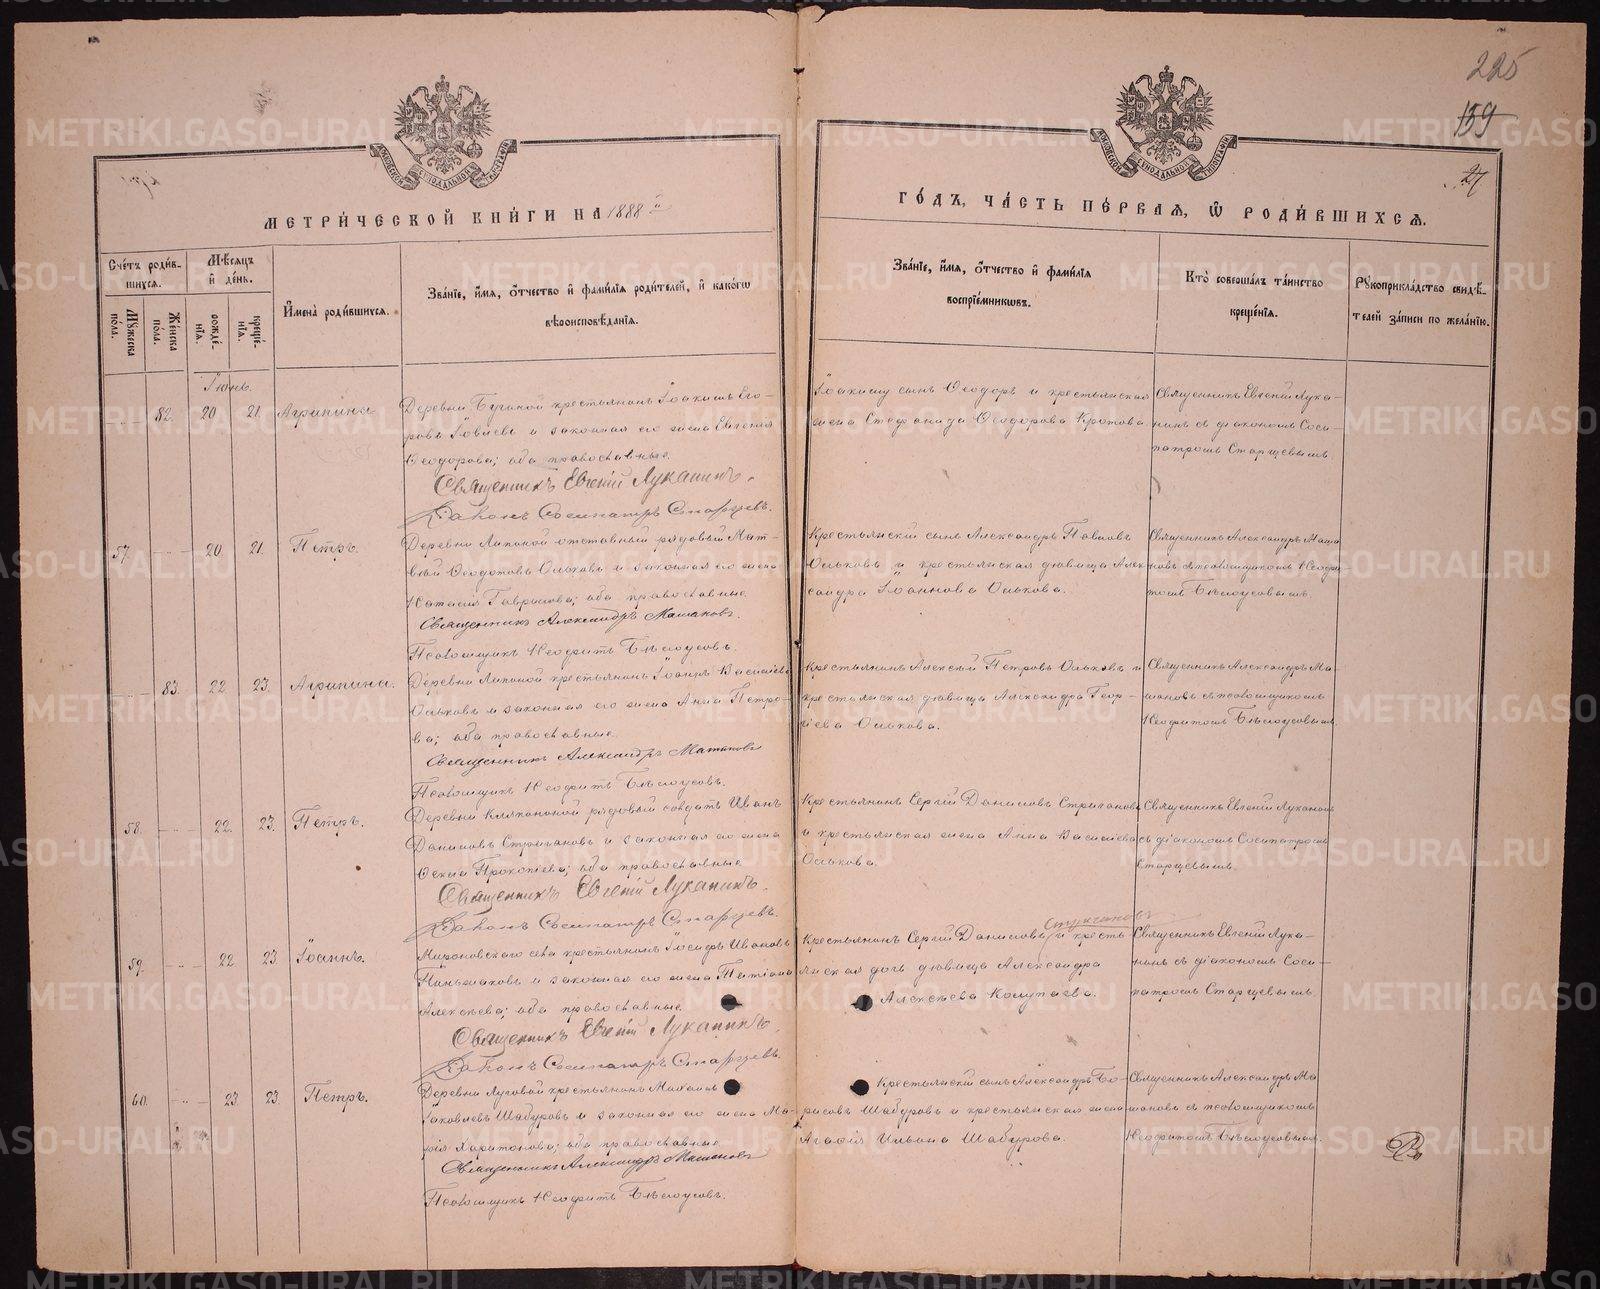 225
159
27
МЕТРИ́ЧЕСКОЙ КНИ́ГИ НА 1888й
ГО́ДЪ, ЧА́СТЬ ПЕ́РВАѦ, Ѡ҆ РОДИ́ВШИХСѦ.
Сче́тъ роди́в-
шихся.
Мѣ́сяцъ
и҆ де́нь.
Мꙋ́жеска по́ла.
Же́нска по́ла.
рожде́-
нїѧ.
креще́-
нїѧ.
И҆мена̀ роди́вшихся.
Зва́нїе, и҆́мя, ѻ҆́тчество и҆ фами́лїя роди́телей, и҆ како́гѡ
вѣроисповѣ́данїѧ.
Зва́нїе, и҆́мя, ѻ҆́тчество и҆ фами́лїя
воспрїе́мникѡвъ.
Кто̀ соверша́лъ та́инство
креще́нїѧ.
Рꙋкоприкла́дство свидѣ́-
телей за́писи по жела́нїю.
Іюнь.
82. 20 21. Агрипина
Деревни крестьянинъ Іоакимъ Его-
ровъ и законная его жена Евгенія
Ѳеодорова; оба православные.
Священникъ Евгеній Луканинъ.
Діаконъ Сосипатръ Старцевъ.
сынъ Ѳеодоръ и крестьянская
жена Стефанида Ѳеодорова Кротова
Священникъ Евгеній Лука-
нинъ съ діакономъ Соси-
патромъ Старцевымъ.
57. 20. 21. Петръ.
Деревни Липиной отставный рядовый Мат-
вѣй Ѳеодотовъ Оськовъ и законная его жена
Гаврилова; оба православные
Священникъ Александръ Машановъ.
Псаломщикъ Неофитъ Бѣлоусовъ.
Крестьянскій сынъ Александръ Павловъ
Оськовъ и крестьянская дѣвица Алек-
сандра Іоаннова Оськова.
Священникъ Александръ Маша-
новъ съ псаломщикомъ Неофи-
томъ Бѣлоусовымъ
83. 22 23. Агрипина.
Деревни Липиной крестьянинъ Іоаннъ Васильевъ
Оськовъ и законная его жена Анна Петро-
ва; оба православные.
Священникъ Александръ Машановъ
Псаломщикъ Неофитъ Бѣлоусовъ.
Крестьянинъ Алексѣй Петровъ Оськовъ и
крестьянская дѣвица Александра Геор-
гіева Оськова.
Священникъ Александръ Ма-
шановъ съ псаломщикомъ
Неофитомъ Бѣлоусовымъ
58. 22. 23. Петръ.
Деревни рядовый солдатъ Иванъ
Даниловъ Стригановъ и законная его жена
Прокопіева; оба православные
Священникъ Евгеній Луканинъ.
Діаконъ Сосипатръ Старцевъ.
Крестьянинъ Сергій Даниловъ Стригановъ
и крестьянская жена Анна Васильева
Оськова.
Священникъ Евгеній Луканинъ
съ діакономъ Сосипатромъ
Старцевымъ
59. 22 23 Іоаннъ.
Мироновскаго села крестьянинъ Іосифъ Ивановъ
и законная его жена Татіана
Алексѣева; оба православные.
Священникъ Евгеній Луканинъ.
Діаконъ Сосипатръ Старцевъ.
Стригановъ
Крестьянинъ Сергій Даниловъ и кресть
янская дочь дѣвица Александра
Алексѣева Колупаева.
Священникъ Евгеній Лука-
нинъ съ діакономъ Соси-
патромъ Старцевымъ
60. 23 23. Петръ.
Деревни Луговой крестьянинъ Михаилъ
Іаковлевъ Шабуровъ и законная его жена Ма-
рія Харитонова; оба православные
Священникъ Александръ Машановъ
Псаломщикъ Неофитъ Бѣлоусовъ.
Крестьянскій сынъ Александръ Бо-
рисовъ Шабуровъ и крестьянская жена
Агафія Ильина Шабурова.
Священникъ Александръ Ма
шановъ съ псаломщикомъ
Неофитомъ Бѣлоусовымъ.
METRIKI.GASO-URAL.RU